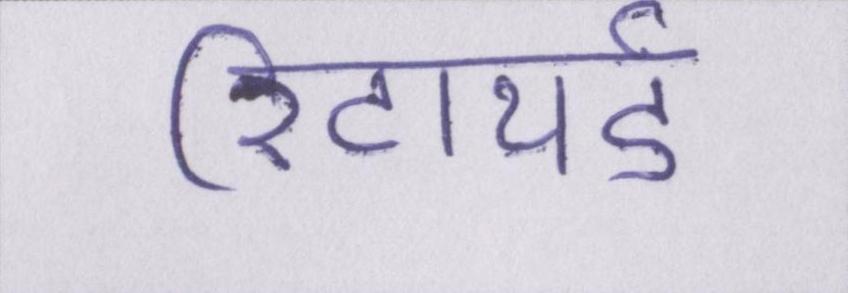 रिटायर्ड